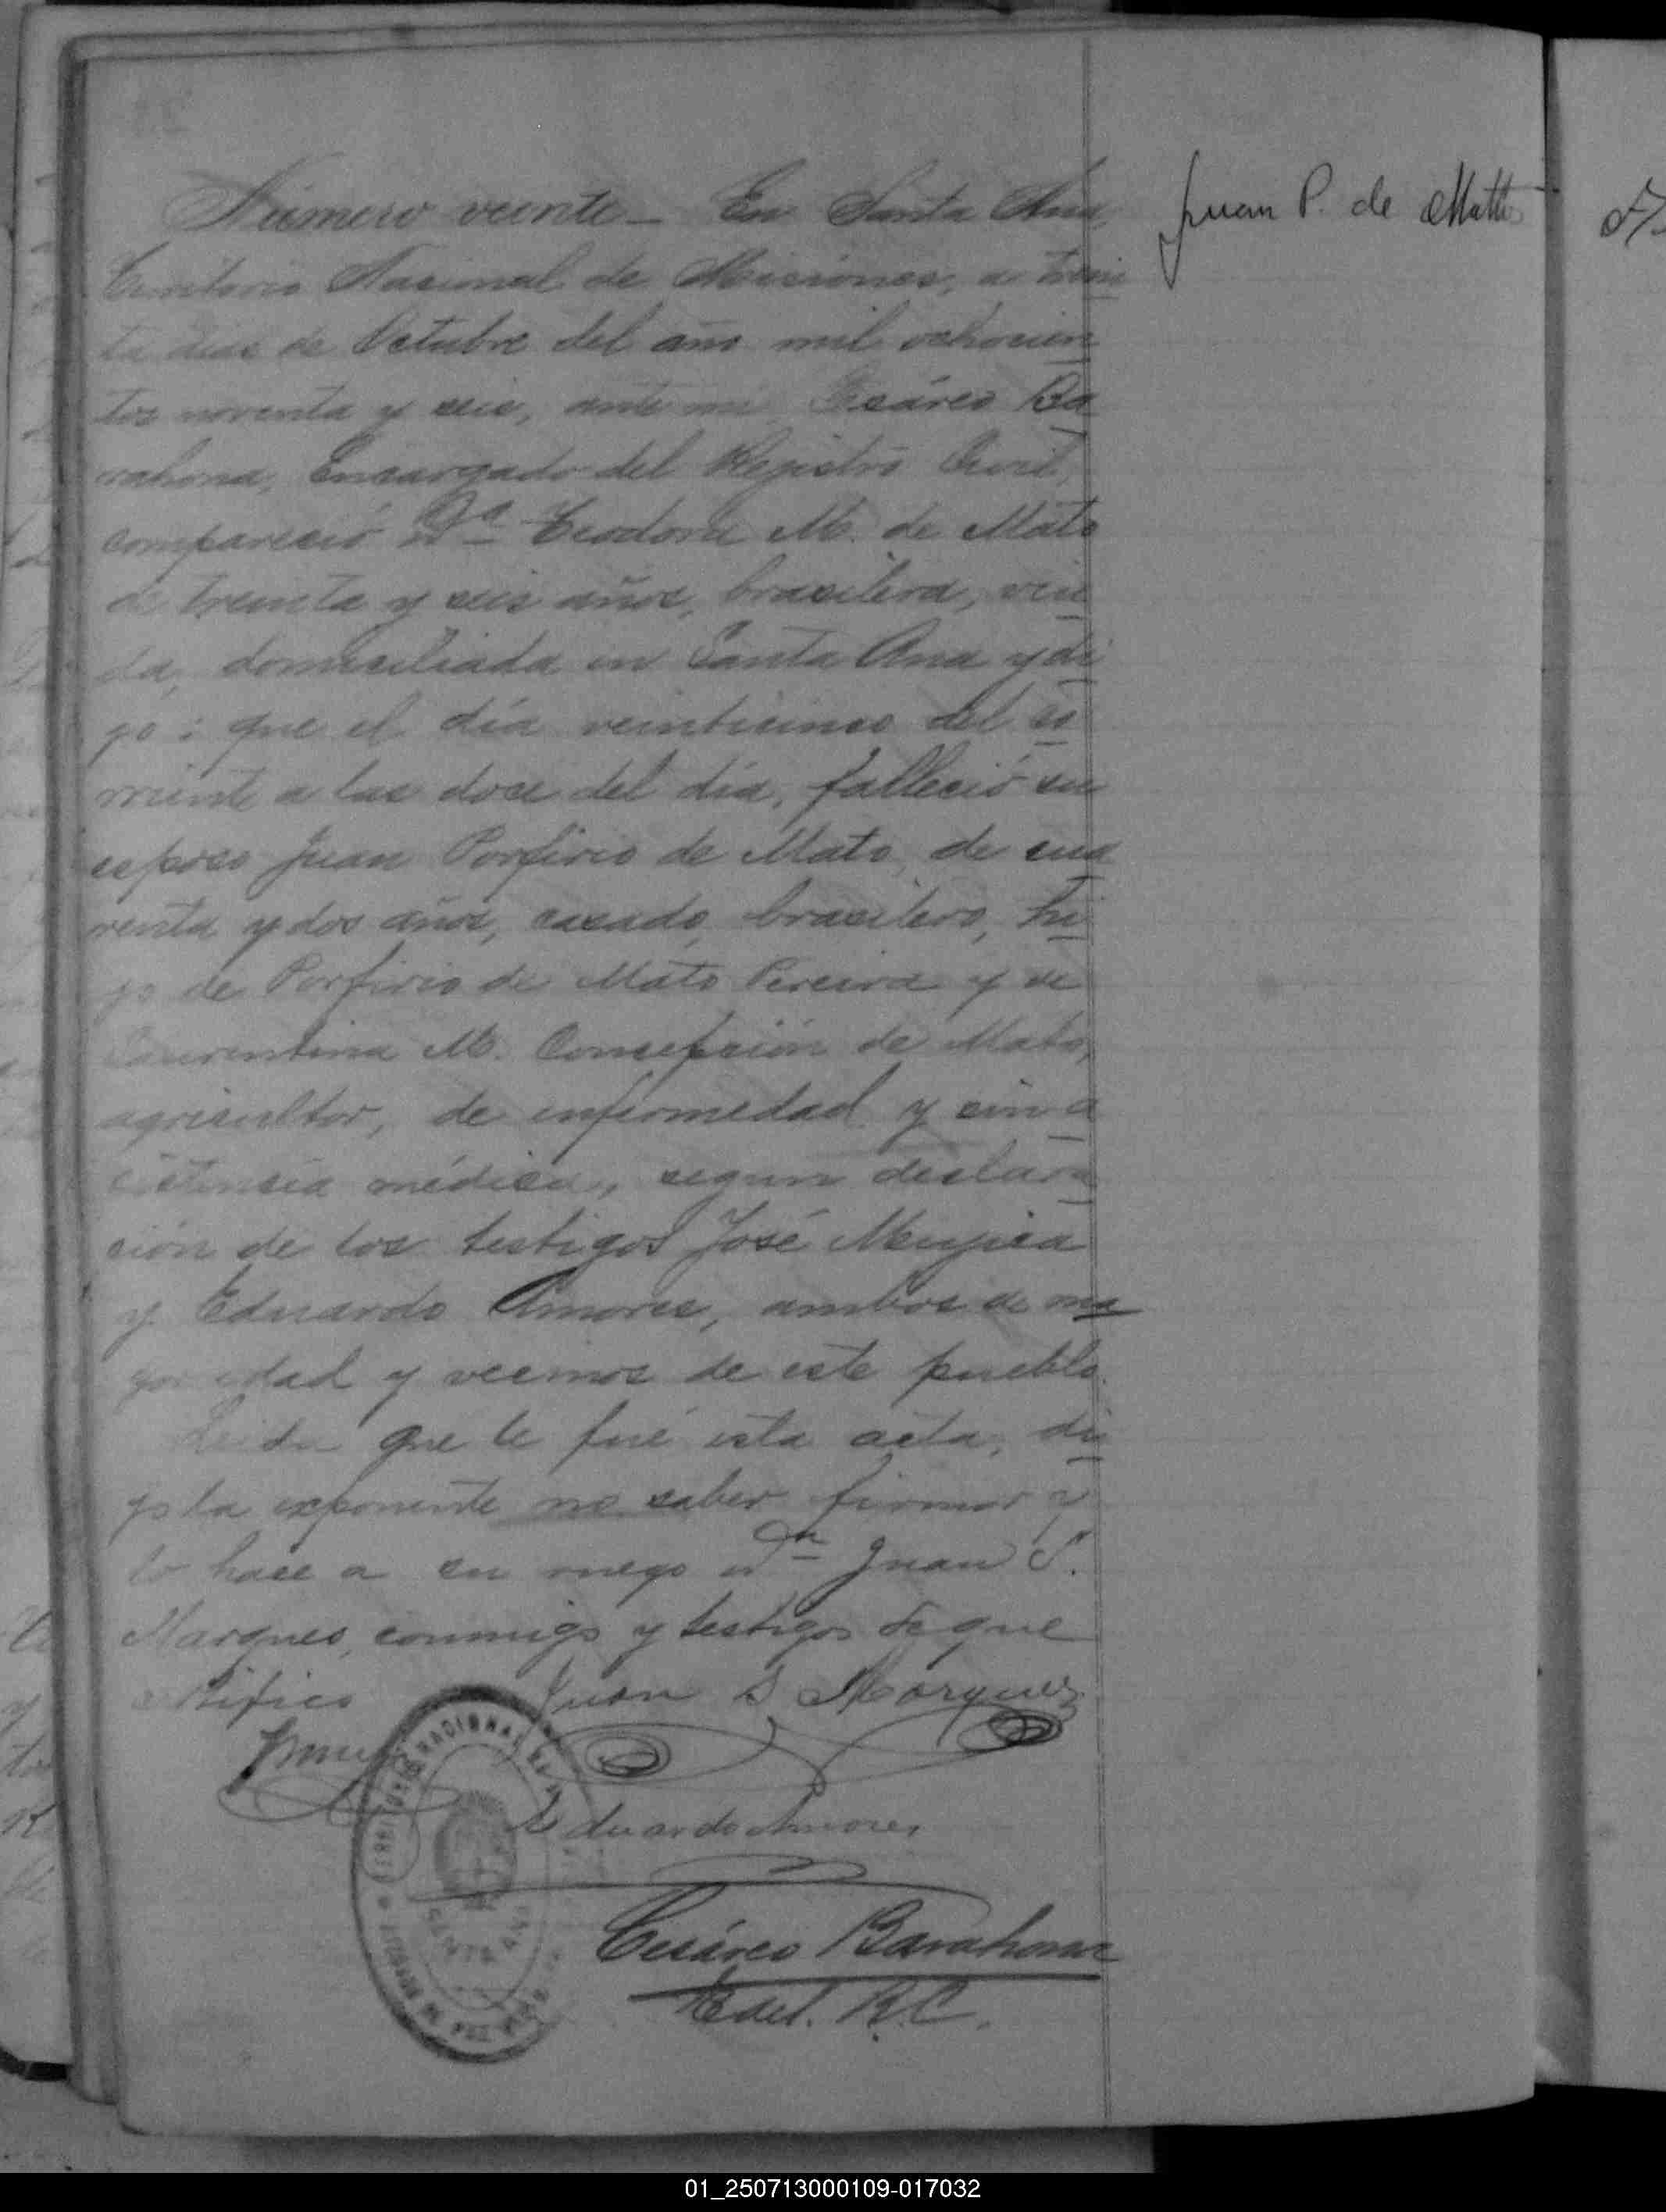 Número veinte_ En Santa Ana,
Territorio Nacional de Misiones, a trein
ta dias de Octubre del año mil ochocien
tos noventa y seis, ante mi Cesáreo Ba
rahona, Encargado del Registro Civil,
compareció Dª Teodora M. de Mato
de treinta y seis años, brasilera, viu
da, domiciliada en Santa Ana y di
jo: que el día veinticinco del co
rriente a las doce del día, falleció su
esposo Juan Porfirio de Mato, de cua
renta y dos años, casado, brasilero, hi
jo de Porfirio de Mato Pereira y de
Laurentina M. Concepción de Mato,
agricultor, de enfermedad y sin a
sistencia médica, segun declara
ción de los testigos José Mujica
y Eduardo Amores, ambos de ma
yor edad y vecinos de este pueblo.
Leida que le fué esta acta, di
jo la exponente no saber firmar y
lo hace a su ruego Dn Juan S.
Marques, conmigo y testigos de que
certifico
Juan S Marquez
Eduardo Amores
Cesáreo Barahona
E. del. R.C.
SANTA ANA
Juan P. de Matto
01_250713000109-017032